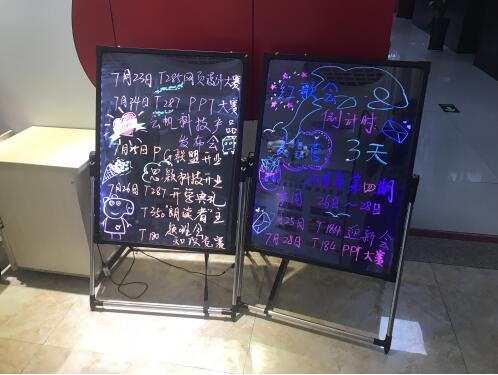 7月23日 T285网页设计大赛
7月24日 T287 PPT大赛
云帆科技产品
发布会
7月25日 P 联盟开业
思数科技开业
7月26日 T287开营典礼
T350 朗读者·主
换班会
T180 知识竞赛
红歌会
倒计时
3天
第四期
26日~28日
月25日 T184迎新会
7月28日 T184 PPT大赛